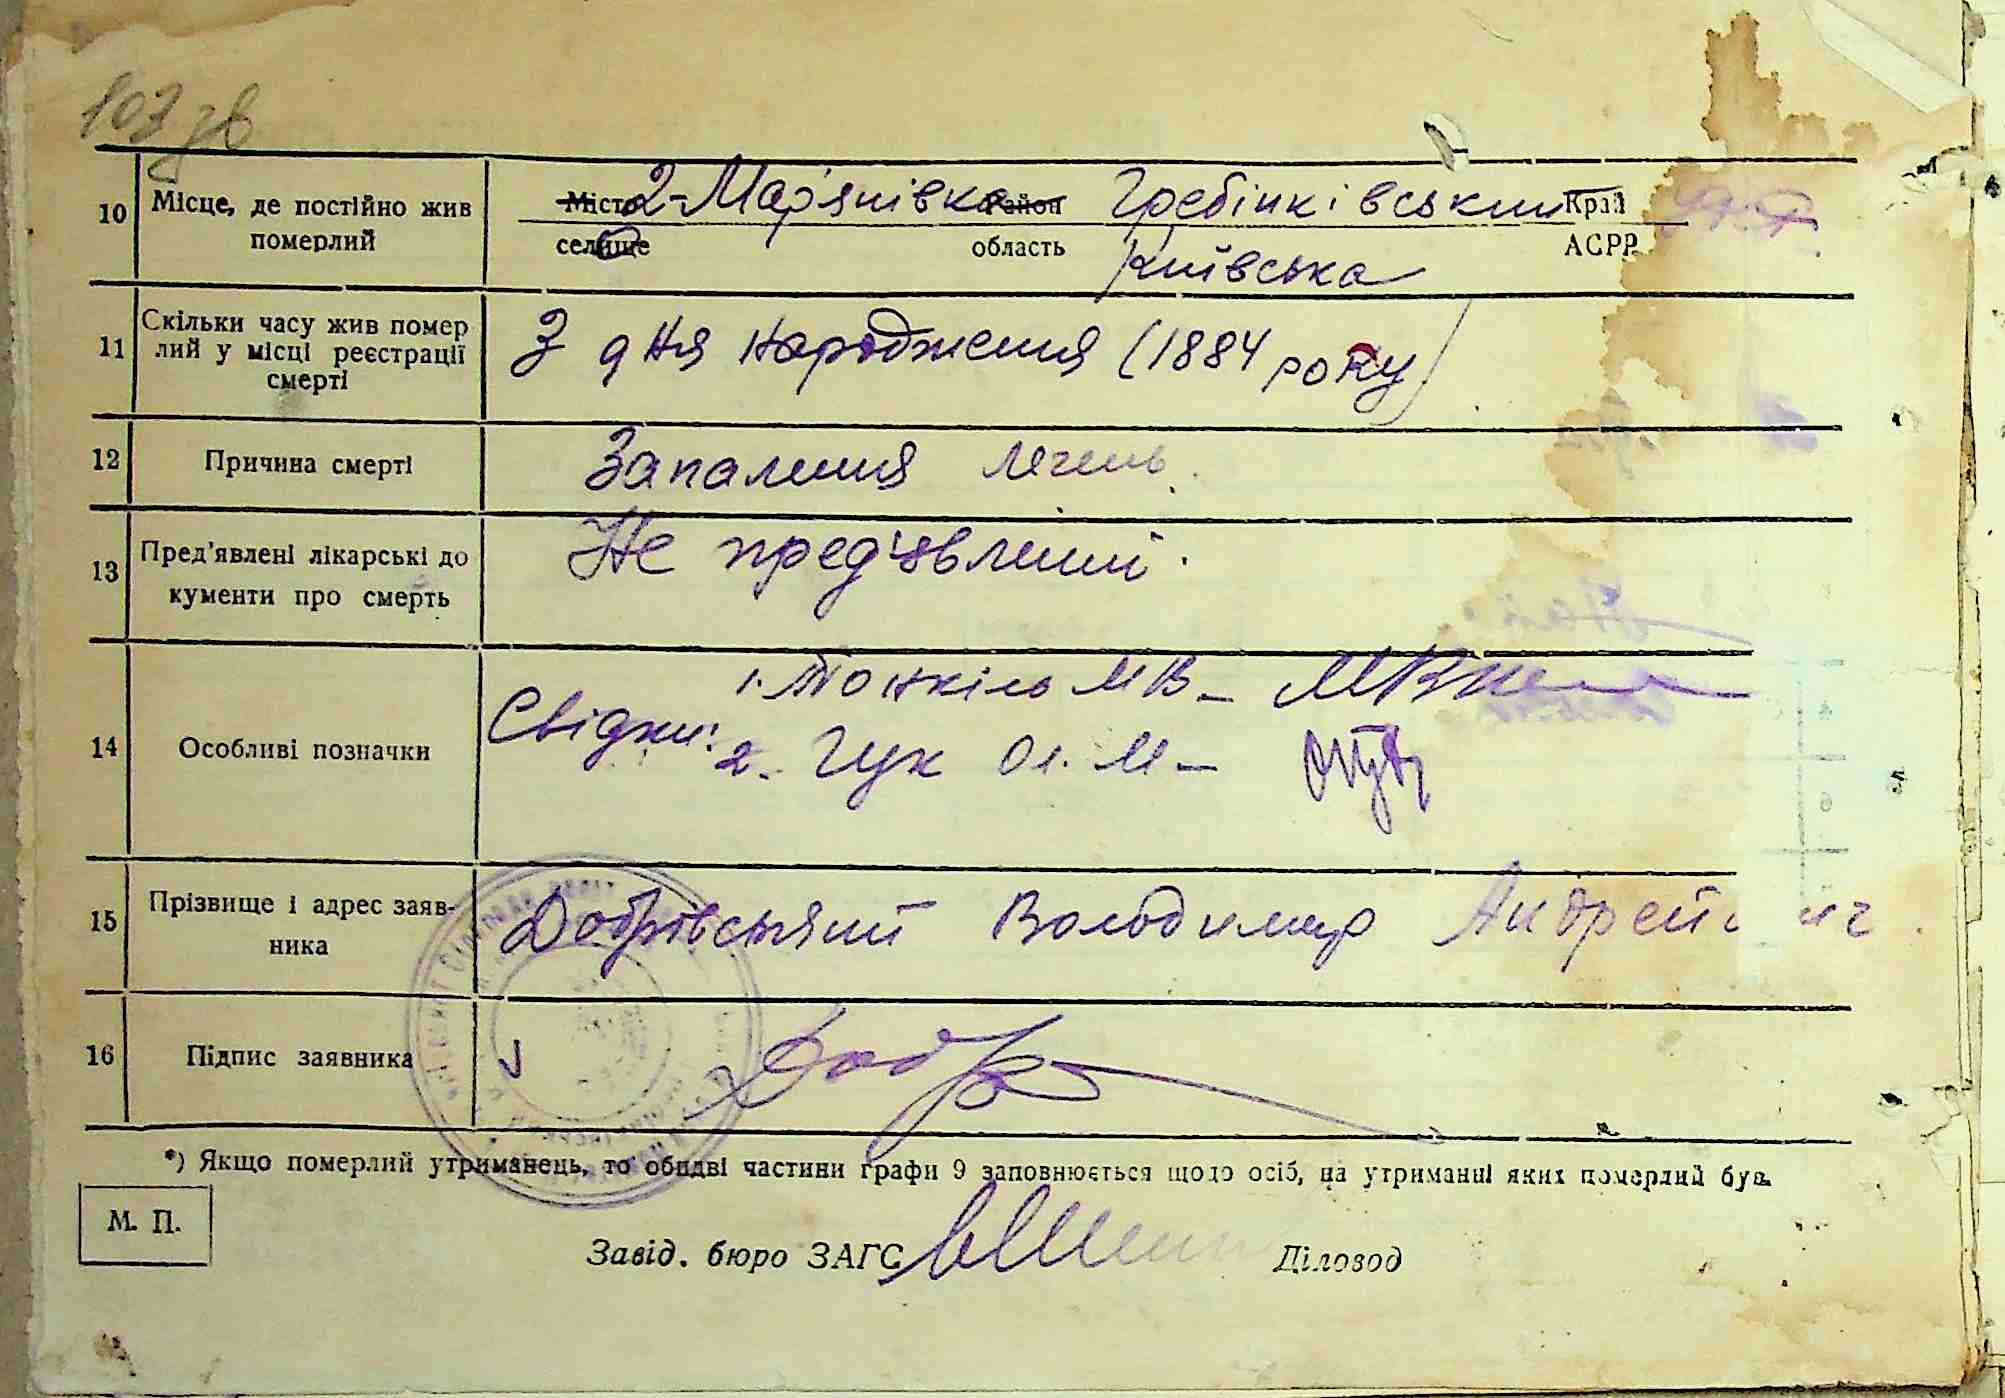 103 зв
10 Місце, де постійно жив Місто 2-Мар'янівка Район Гребінківський Край
померлий селище область Київська АСРР
11 Скільки часу жив помер
лий у місці реєстрації З дня народження (1884 року)
смерті
12 Причина смерті Запалення лечень.
13 Пред'явлені лікарські до Не пред'явлений.
кументи про смерть
1. Тонкіль М В –
14 Особливі позначки Свідки: 2. Гук Ол. М –
15 Прізвище і адрес заяв- Добровський Володимир Андрейович
ника
16 Підпис заявника Добр
*) Якщо померлий утриманець, то обидві частини графи 9 заповнюється щодо осіб, на утриманні яких померлий був.
М. П.
Завід. бюро ЗАГС Діловод